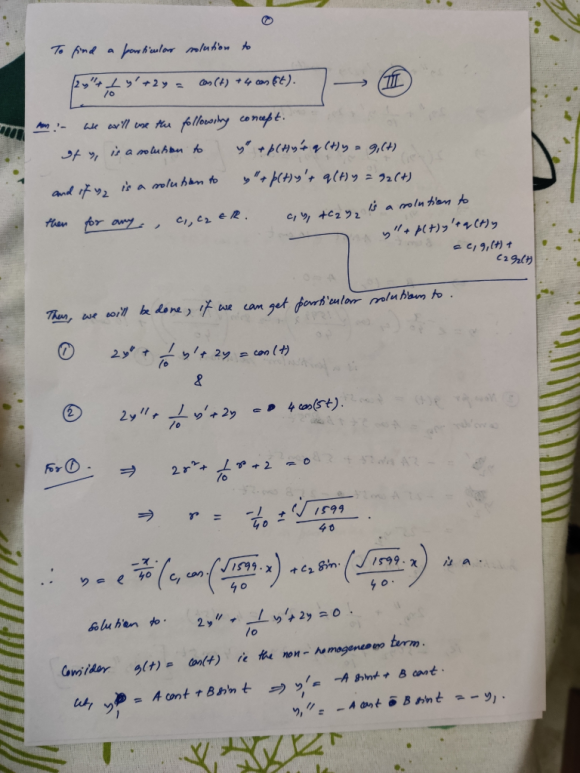 ①
To find a particular solution to
2y'' + 1/10 y' + 2y = cos(t) + 4 cos(5t). → III
Ans :- We will use the following concept.
If y₁ is a solution to y'' + p(t)y' + q(t)y = g₁(t)
and if y₂ is a solution to y'' + p(t)y' + q(t)y = g₂(t)
then for any, c₁, c₂ ∈ ℝ. c₁y₁ + c₂y₂ is a solution to
y'' + p(t)y' + q(t)y
= c₁g₁(t) +
c₂g₂(t)
Thus, we will be done, if we can get particular solutions to.
① 2y'' + 1/10 y' + 2y = cos(t)
&
② 2y'' + 1/10 y' + 2y = 4 cos(5t).
For ①. ⇒ 2r² + 1/10 r + 2 = 0
⇒ r = -1/40 ± i√1599/40.
∴ y = e^(-x/40) (c₁ cos(√1599/40 · x) + c₂ sin(√1599/40 · x) is a
solution to. 2y'' + 1/10 y' + 2y = 0.
Consider g(t) = cos(t) is the non-homogeneous term.
Let, y₁ = A cos t + B sin t ⇒ y₁' = -A sin t + B cos t.
y₁'' = -A cos t - B sin t = -y₁.